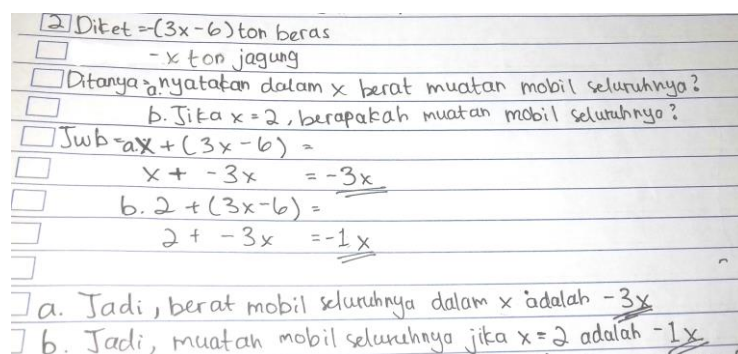 2 Diket = -(3x-6) ton beras
- x ton jagung
Ditanya = a. nyatakan dalam x berat muatan mobil seluruhnya?
b. Jika x = 2, berapakah muatan mobil seluruhnya?
Jwb = a. x + (3x-6) =
x + -3x = -3x
b. 2 + (3x-6) =
2 + -3x = -1x
a. Jadi, berat mobil seluruhnya dalam x adalah -3x
b. Jadi, muatan mobil seluruhnya jika x = 2 adalah -1x